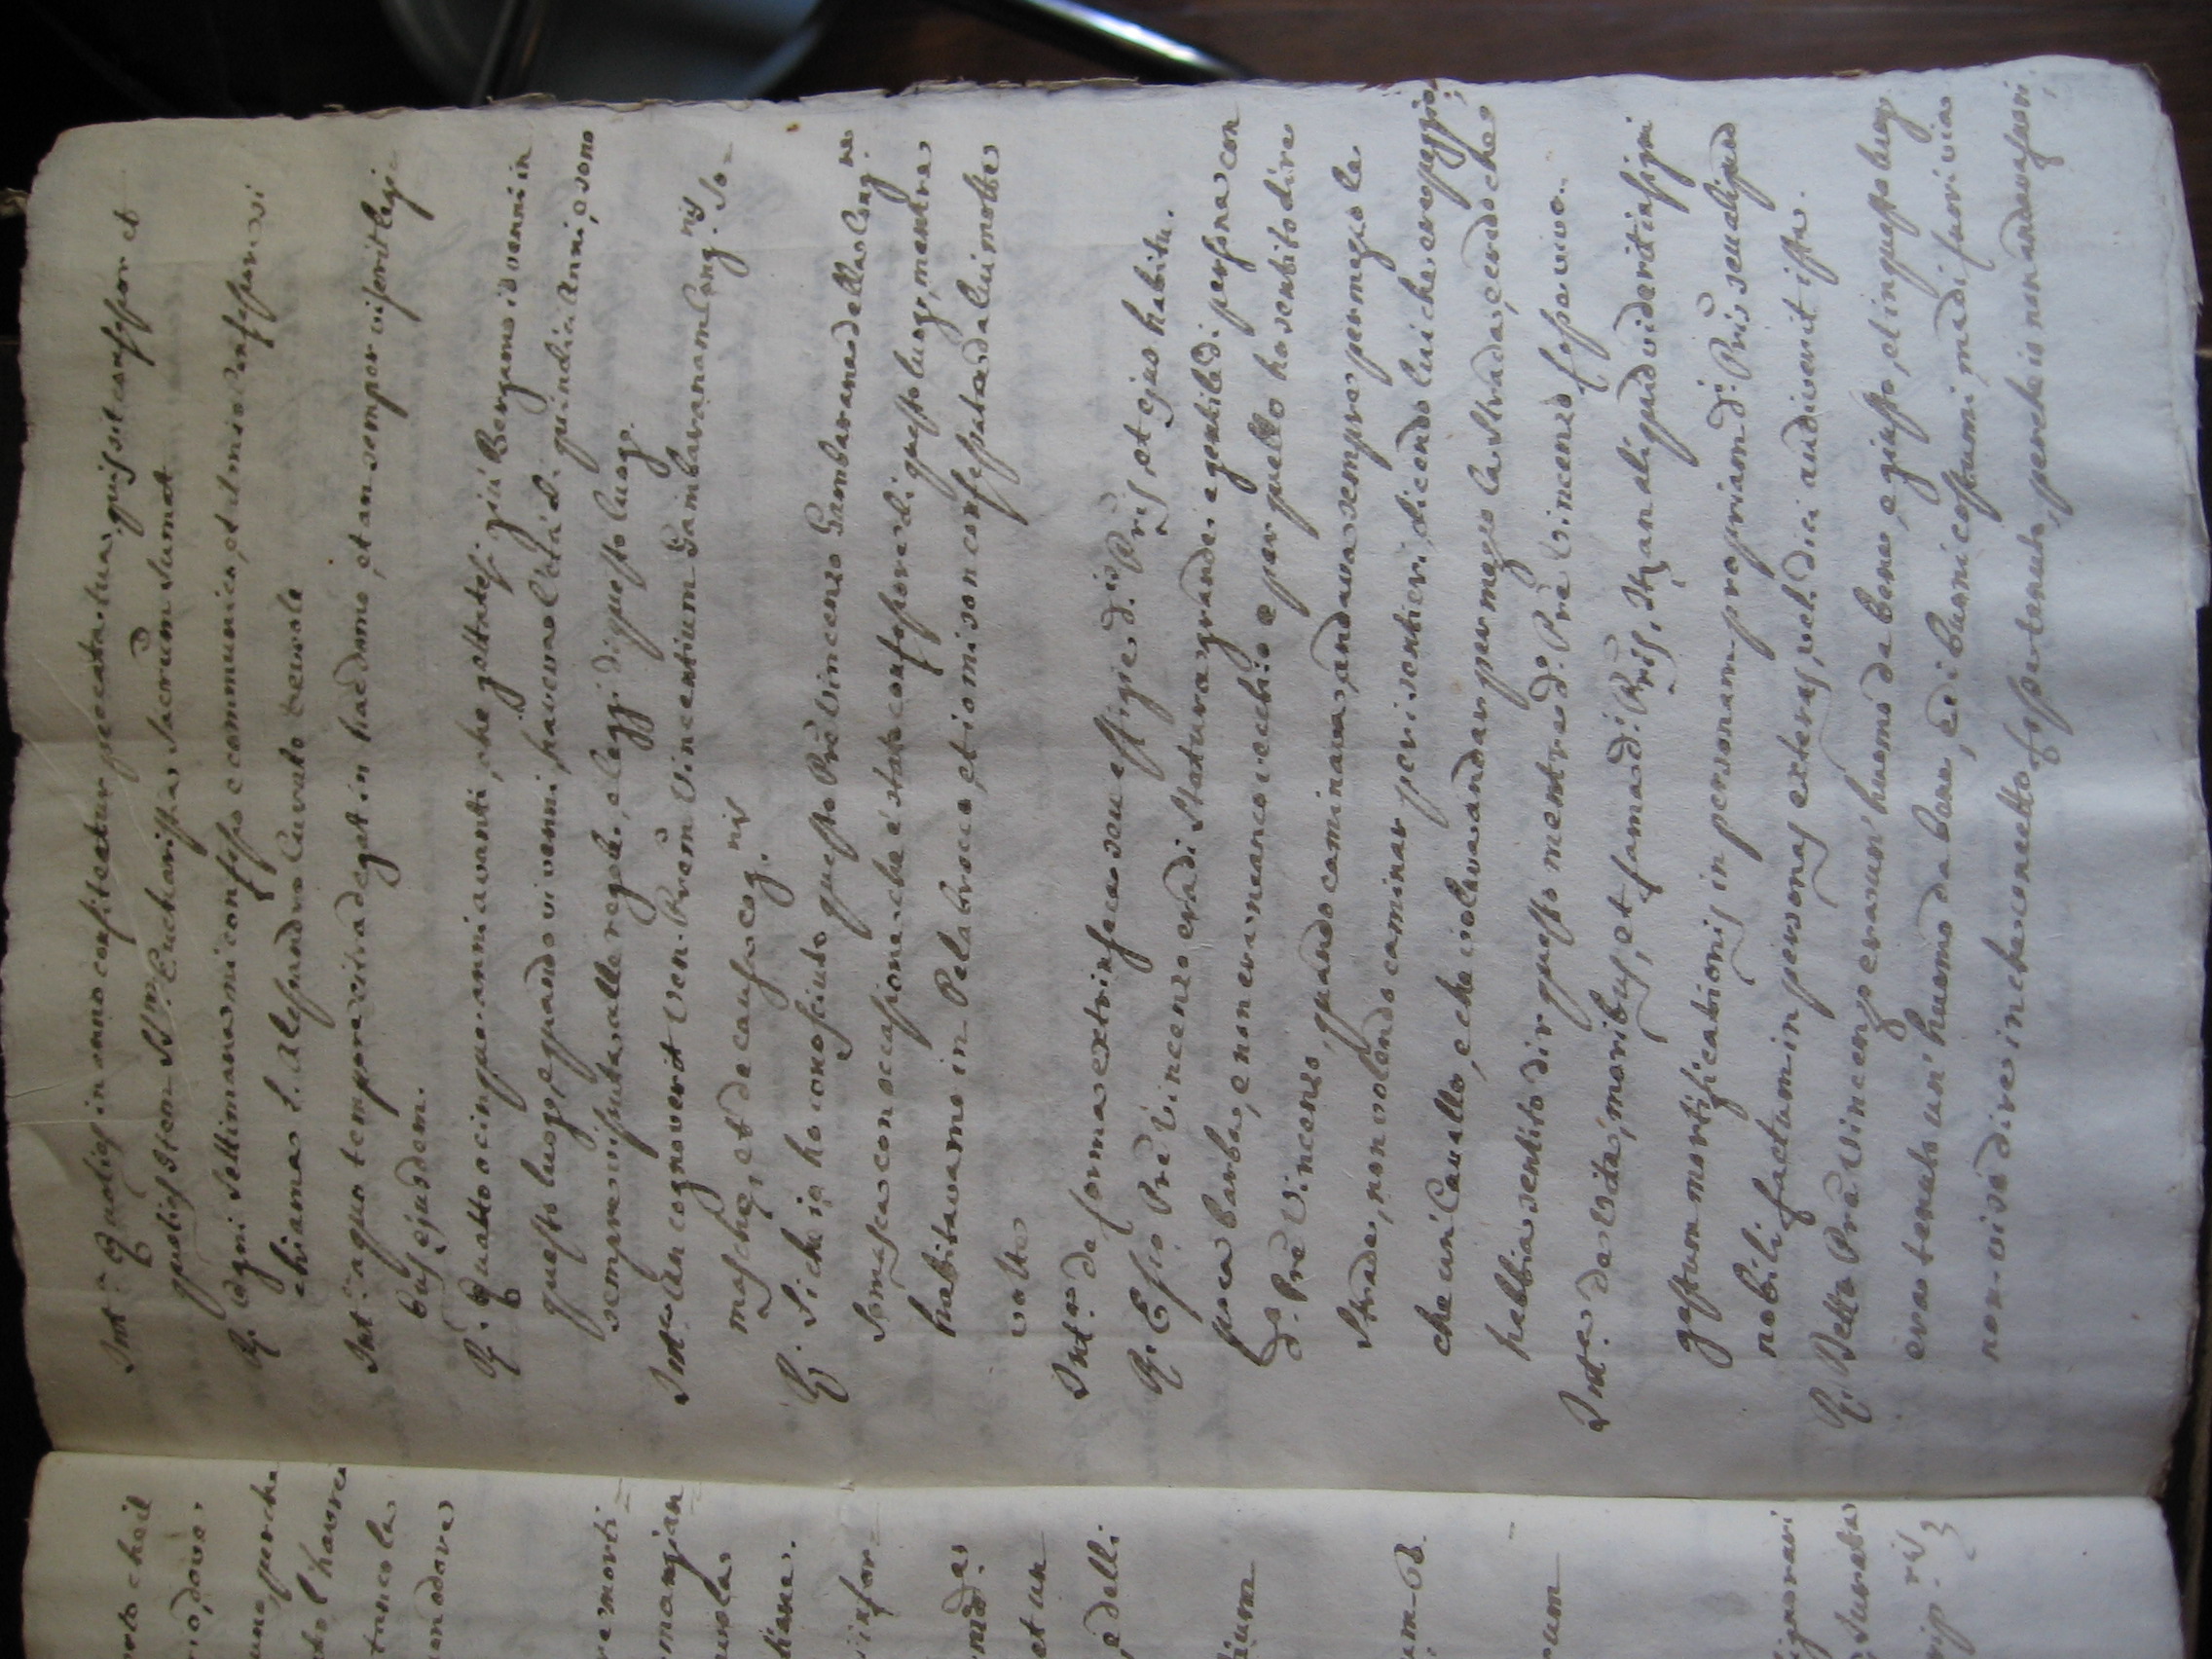 Int.ª Quoties in anno confiteatur peccata sua, quis sit confessor et
quoties Item SS.mm Eucharistiæ Sacrum sumat
R. Ogni settimana mi confesso e communico, et il mio confessore si
chiama S. Alessandro Curato
Int.ª a quo tempore citra degat in hac domo, et an semper
bus ejusdem.
R. Quattro o cinque anni avanti, che gettasse giù Bergamo io venni in
questo luogo, e quando vi venni, haveva l'età di quindici Anni, e sono
sempre vissuta alle regole, e leggi di questo luogo.
Int.ª An cognoverit Ven. Prem Vincentium Gambaranam Cong.nis So-
maschæ, et de causa cog.nis
R. Sì che io ho conosciuto questo Prē Vincenzo Gambarana della Cong.ne
Somasca con occasione che è stato confessore di questo luogo, mentre
habitavamo in Pelabrocco, et io mi son confessata da lui molte
volte
Int.ª de forma extrinseca seu effigie d.i Pris, et ejus habitu.
R. Esso Prē Vincenzo era di statura grande, e gentile di persona con
poca barba, e non era manco vecchio e per quello ho sentito dire
d.o Prē Vincenzo, quando caminava, andava sempre per mezo le
strade, non volendo caminar per i sentieri, dicendo lui che era peggio,
che un Cavallo, e che voleva andar per mezo la strada, e credo che
hebbia sentito dir questo mentre d.o Prē Vincenzo fosse vivo.
Int.ª de vita, moribus, et fama d.i Pris, Itē an aliquid viderit insigni
gestum mortificationis in personam propriam d.i Pris seu aliquid
nobili factum in personas exteras, vel dici audiverit ipse.
R. Detto Prē Vincenzo era un' huomo da bene, e giusto, et in questo luogo
era tenuto un' huomo da bene, e di buoni costumi, ma di fuori via
non vi sò dire in che concetto fosse tenuto, perche io non andavo fuori,
erto che il
rio, dove,
uno perche
sto l'havere
tanco la
ondore
re morti-
mangiar
uola
tiane.
infor-
et un
e delli
dium
um